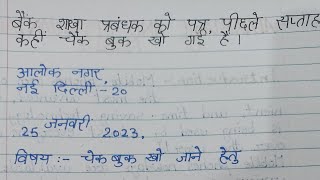 बैंक शाखा प्रबंधक को पत्र, पीछले सप्ताह
कहीं चैक बुक खो गई है।
आलोक नगर,
नई दिल्ली - 20
25 जनवरी 2023,
विषय :- चेक बुक खो जाने हेतु